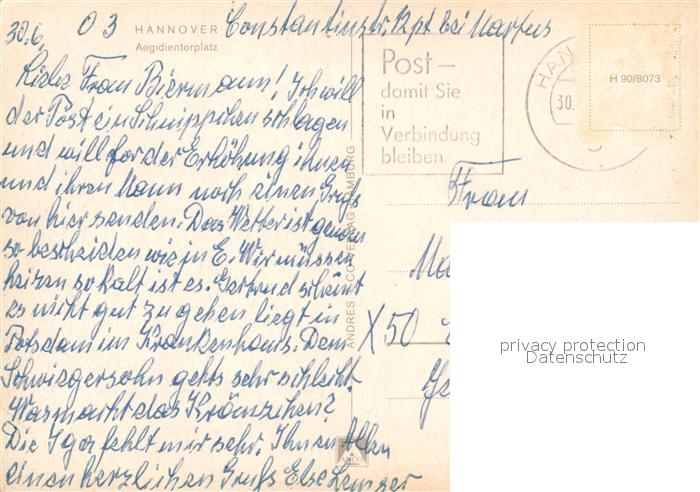 30.6. O 3 HANNOVER Constantinstr. 12 pt bei Martens
Aegidientorplatz
Liebe Frau Biermann! Ich will
der Post ein Schnippchen schlagen
und will for der Erhöhung ihnen
und ihren Mann noch einen Gruß
von hier senden. Das Wetter ist genau
so bescheiden wie in E. Wir müssen
heizen so kalt ist es. Gertrud scheint
es nicht gut zu gehen liegt in
Potsdam im Krankenhaus. Dem
Schwiegersohn gehts sehr schlecht.
Was macht das
Die fehlt mir sehr. Ihnen Allen
einen herzlichen Gruß Else
Post –
damit Sie
in
Verbindung
bleiben
HAN
30.
H 90/8073
Frau
X 50
privacy protection
Datenschutz